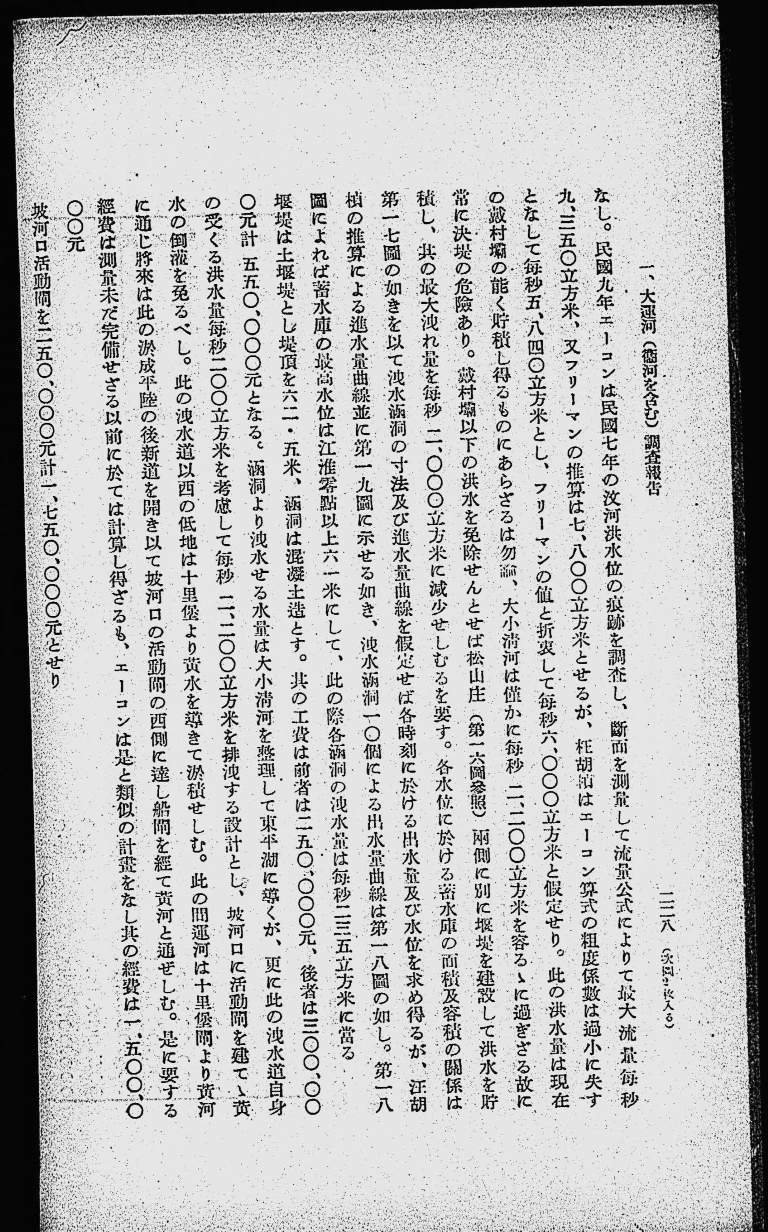 一、大運河（衞河を含む）調査報告
二二八
なし。民國九年エーコンは民國七年の汶河洪水位の痕跡を調査し、斷面を測量して流量公式によりて最大流量每秒
九、三五〇立方米、又フリーマンの推算は七、八〇〇立方米とせるが、汪胡楨はエーコン算式の粗度係數は過小に失す
となして每秒五、八四〇立方米とし、フリーマンの値と折衷して每秒六、〇〇〇立方米と假定せり。此の洪水量は現在
の戴村壩の能く貯積し得るものにあらざるは勿論、大小淸河は僅かに每秒一、二〇〇立方米を容るゝに過ぎざる故に
常に決堤の危險あり。戴村壩以下の洪水を免除せんとせば松山庄（第一六圖參照）兩側に別に堰堤を建設して洪水を貯
積し、其の最大洩れ量を每秒二、〇〇〇立方米に減少せしむるを要す。各水位に於ける蓄水庫の面積及容積の關係は
第一七圖の如きを以て洩水涵洞の寸法及び進水量曲線を假定せば各時刻に於ける出水量及び水位を求め得るが、汪胡
楨の推算による進水量曲線並に第一九圖に示せる如き、洩水涵洞一〇個による出水量曲線は第一八圖の如し。第一八
圖によれば蓄水庫の最高水位は江淮零點以上六一米にして、此の際各涵洞の洩水量は每秒二三五立方米に當る
堰堤は土堰堤とし堤頂を六二・五米、涵洞は混凝土造とす。其の工費は前者は二五〇、〇〇〇元、後者は三〇〇、〇〇
〇元計 五五〇、〇〇〇元となる。涵洞より洩水せる水量は大小淸河を整理して東平湖に導くが、更に此の洩水道自身
の受くる洪水量每秒二〇〇立方米を考慮して每秒 二、二〇〇立方米を排洩する設計とし、坡河口に活動閘を建てゝ黃
水の倒灌を免るべし。此の洩水道以西の低地は十里堡より黃水を導きて淤積せしむ。此の間運河は十里堡閘より黃河
に通じ將來は此の淤成平陸の後新道を開き以て坡河口の活動閘の西側に達し船閘を經て黃河と通ぜしむ。是に要する
經費は測量未だ完備せざる以前に於ては計算し得ざるも、エーコンは是と類似の計畫をなし其の經費は一、五〇〇、〇
〇〇元
坡河口活動閘を二五〇、〇〇〇元計一、七五〇、〇〇〇元とせり